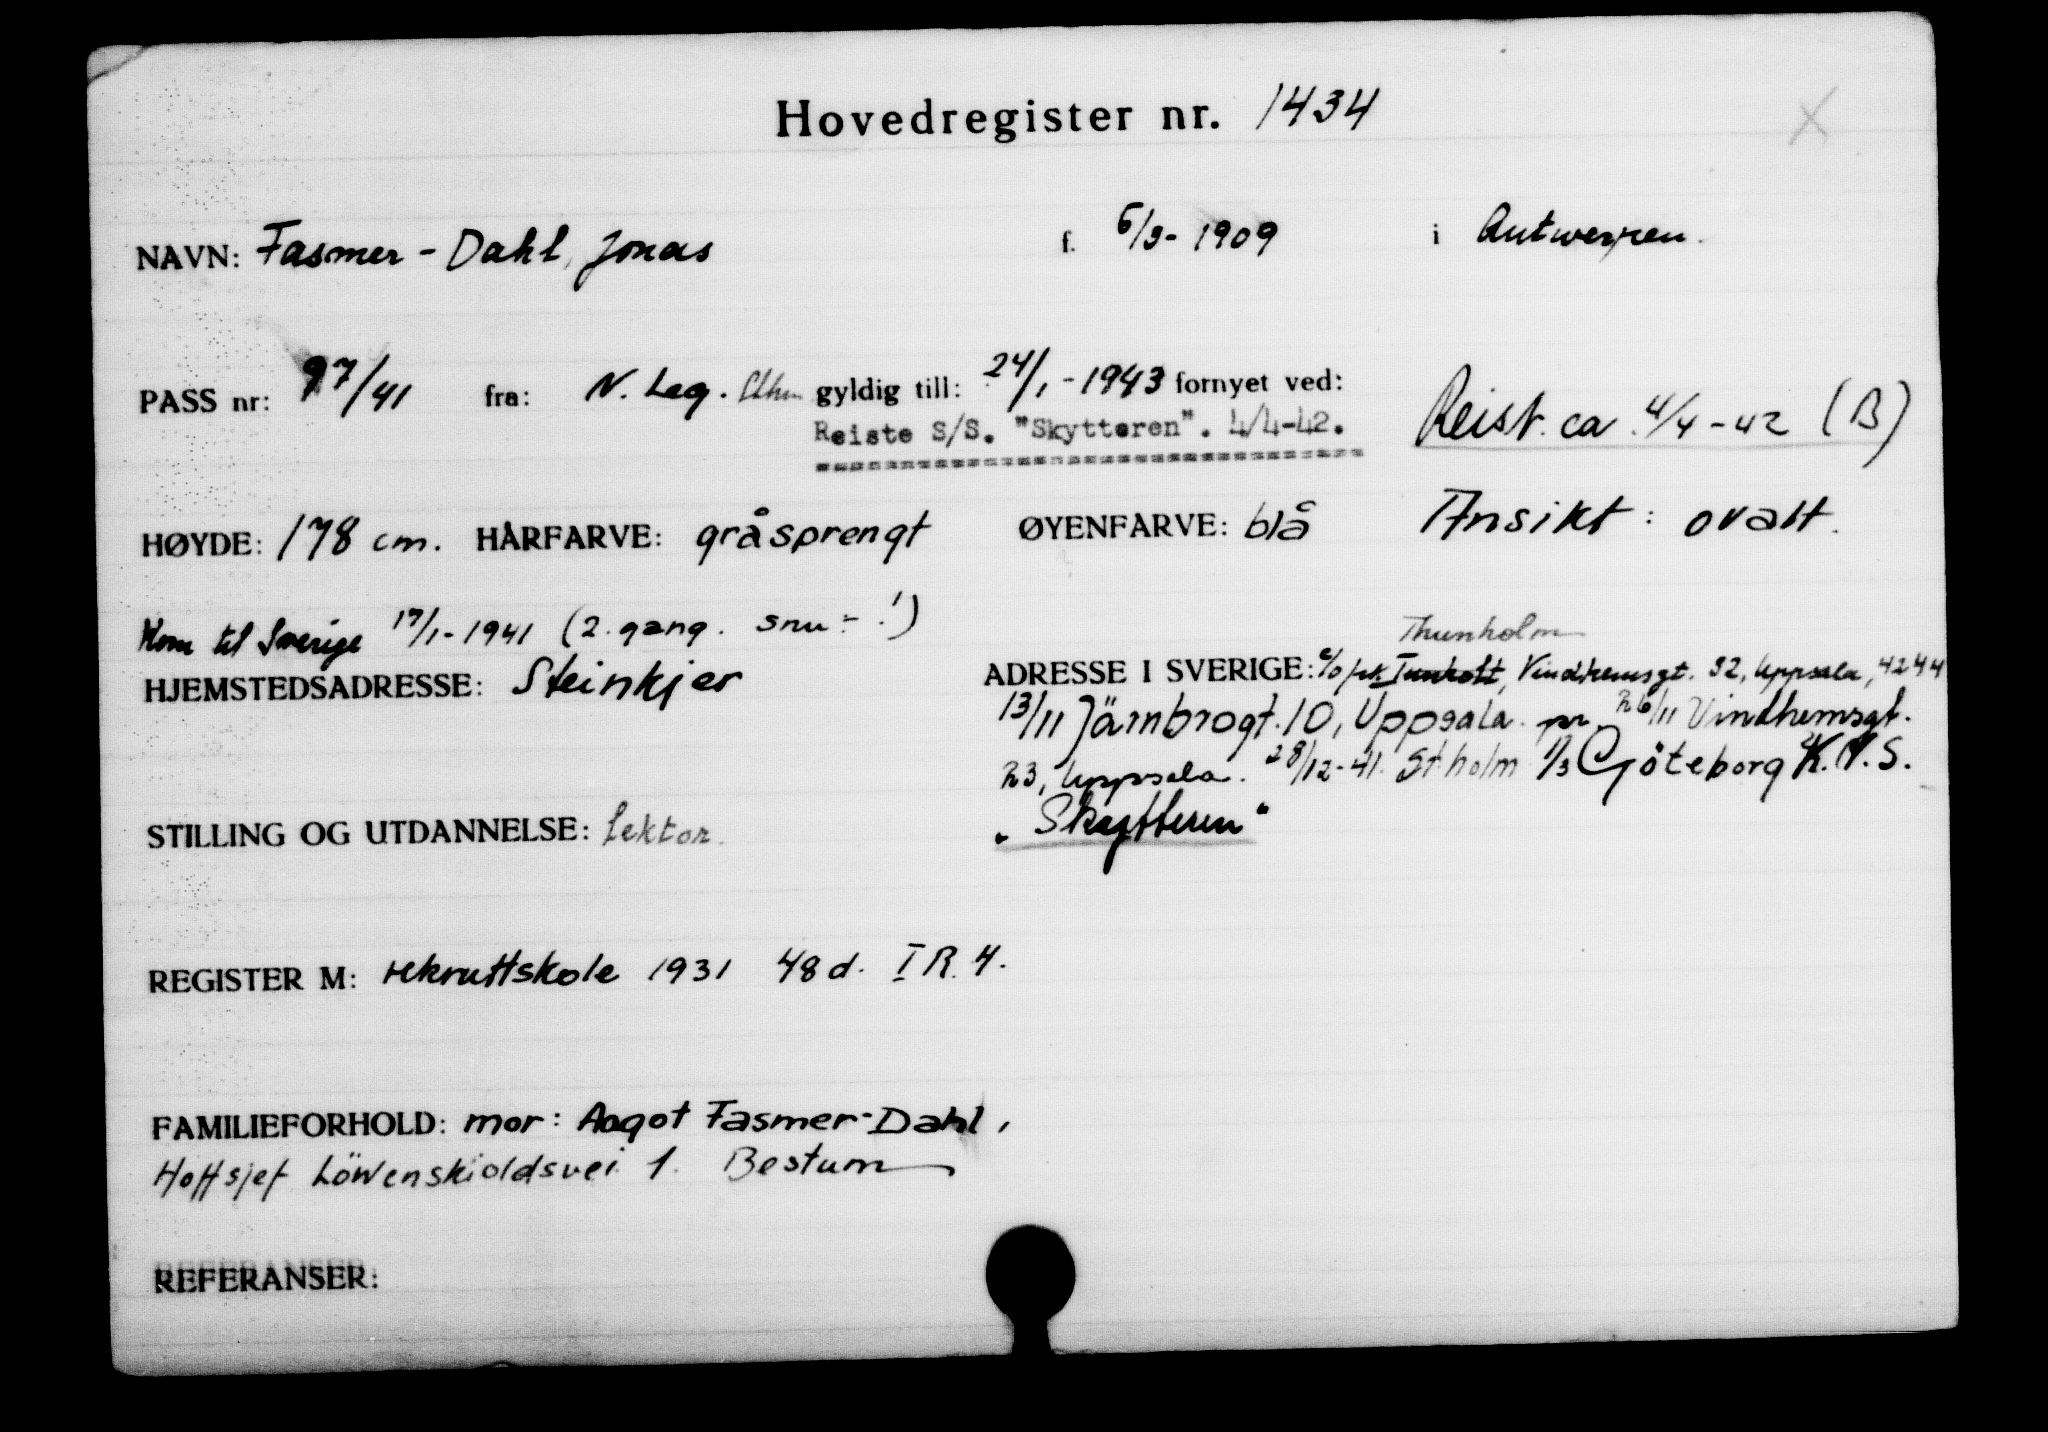 Hovedregister nr. 1434
NAVN: Fasmer-Dahl, Jonas f. 6/9-1909 i Antwerpen.
PASS nr: 97/41 fra: N. Leg. Sthm gyldig till: 24/1-1943 fornyet ved:
Reiste S/S. "Skytteren". 4/4-42. Reist ca. 4/4-42 (B)
HØYDE: 178 cm. HÅRFARVE: gråsprengt ØYENFARVE: blå Ansikt: ovalt.
Kom til Sverige 17/1-1941 (2. gang.
Thunholm
HJEMSTEDSADRESSE: Steinkjer ADRESSE I SVERIGE: c/o frk Vindhemsgt. 32, Uppsala, 4244
13/11 Järnbrogt. 10, Uppsala. pr. Vindhemsgt.
Uppsala. 28/12-41. Stholm 1/3 Göteborg
STILLING OG UTDANNELSE: lektor. "Skytteren"
REGISTER M: rekruttskole 1931 48 d. I R. 4.
FAMILIEFORHOLD: mor: Aagot Fasmer-Dahl,
Hoffsjef Löwenskioldsvei 1. Bestum
REFERANSER: